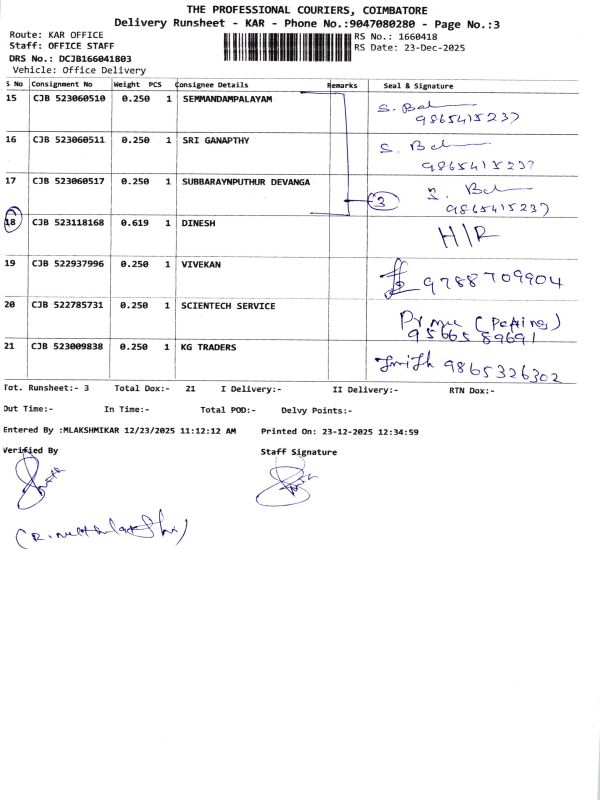 THE PROFESSIONAL COURIERS, COIMBATORE
Delivery Runsheet - KAR - Phone No.:9047080280 - Page No.:3
Route: KAR OFFICE RS No.: 1660418
Staff: OFFICE STAFF RS Date: 23-Dec-2025
DRS No.: DCJB166041803
Vehicle: Office Delivery
S No Consignment No Weight PCS Consignee Details Remarks Seal & Signature
15 CJB 523060510 0.250 1 SEMMANDAMPALAYAM
9865415237
16 CJB 523060511 0.250 1 SRI GANAPTHY
9865415237
17 CJB 523060517 0.250 1 SUBBARAYNPUTHUR DEVANGA 3
9865415237
18 CJB 523118168 0.619 1 DINESH H/R
19 CJB 522937996 0.250 1 VIVEKAN 9788709904
20 CJB 522785731 0.250 1 SCIENTECH SERVICE
9566589691
21 CJB 523009838 0.250 1 KG TRADERS 9865326302
Tot. Runsheet:- 3 Total Dox:- 21 I Delivery:- II Delivery:- RTN Dox:-
Out Time:- In Time:- Total POD:- Delvy Points:-
Entered By :MLAKSHMIKAR 12/23/2025 11:12:12 AM Printed On: 23-12-2025 12:34:59
Verified By Staff Signature